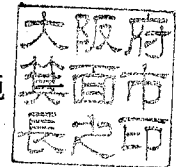 大阪府
箕面市
長之印